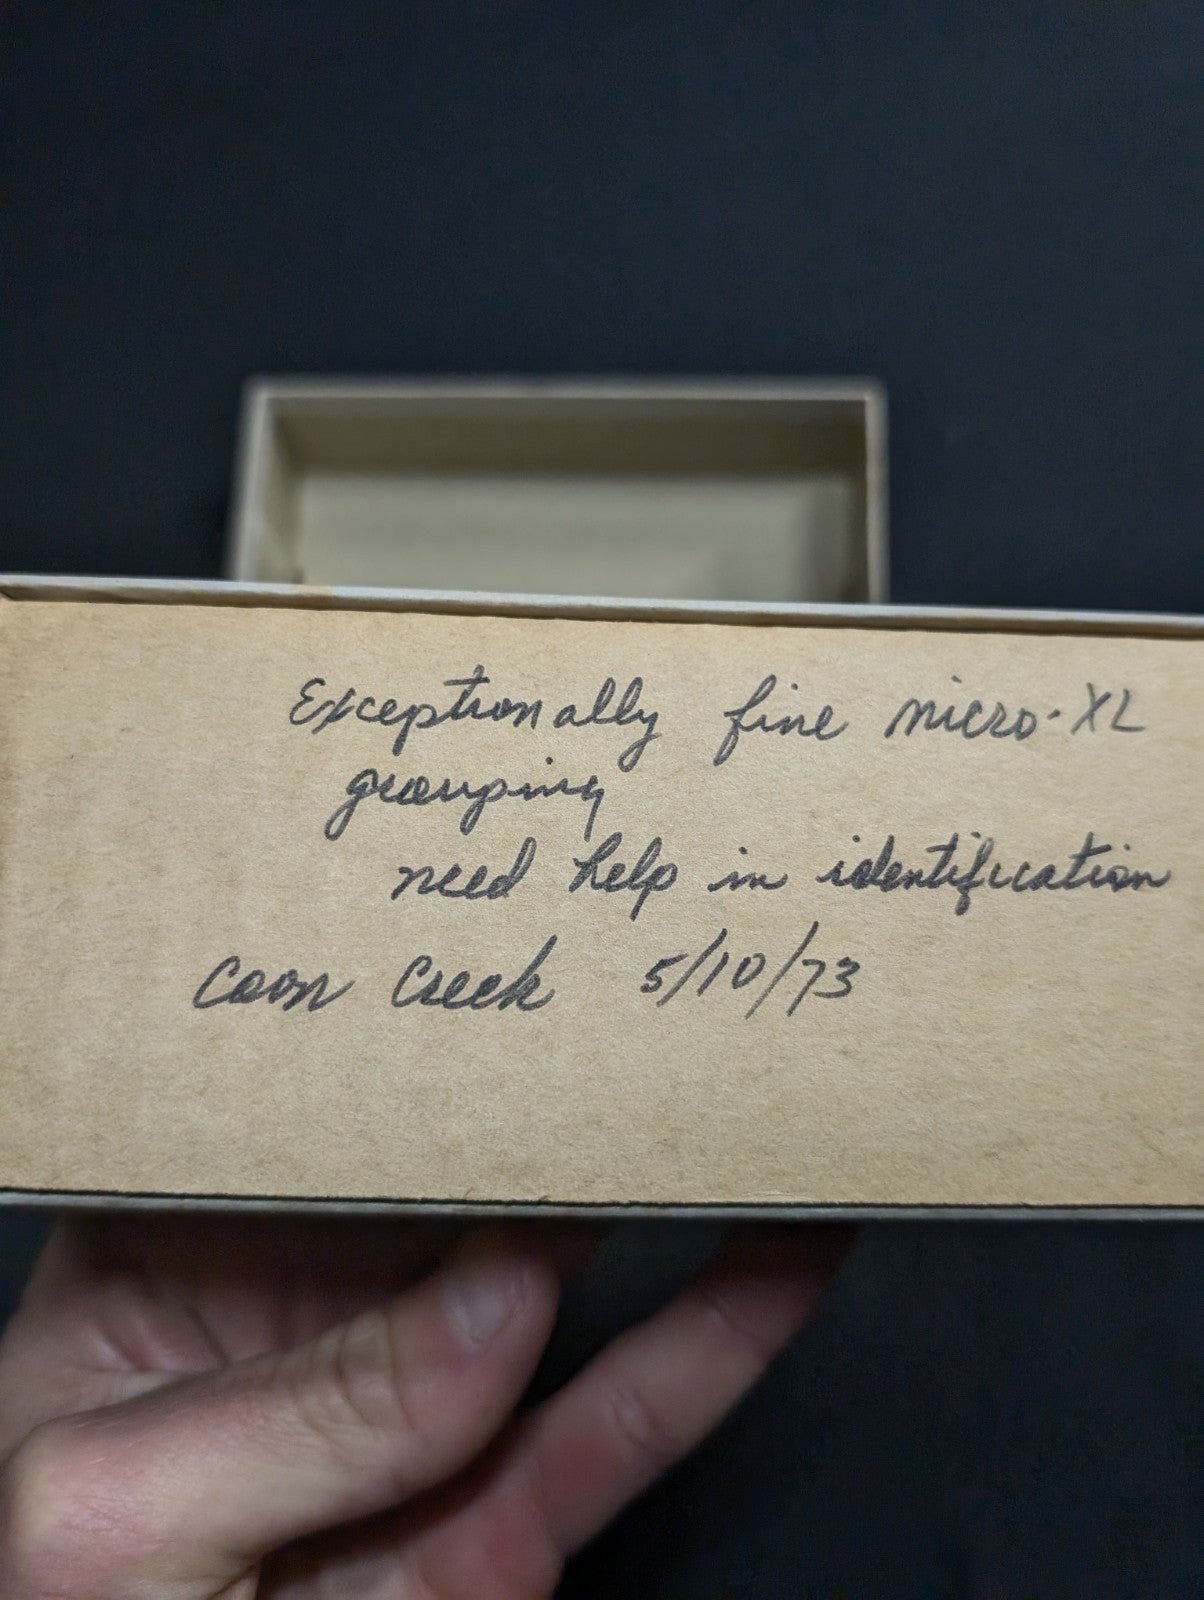 Exceptionally fine micro-XL
grouping
need help in identification
Coon Creek 5/10/73